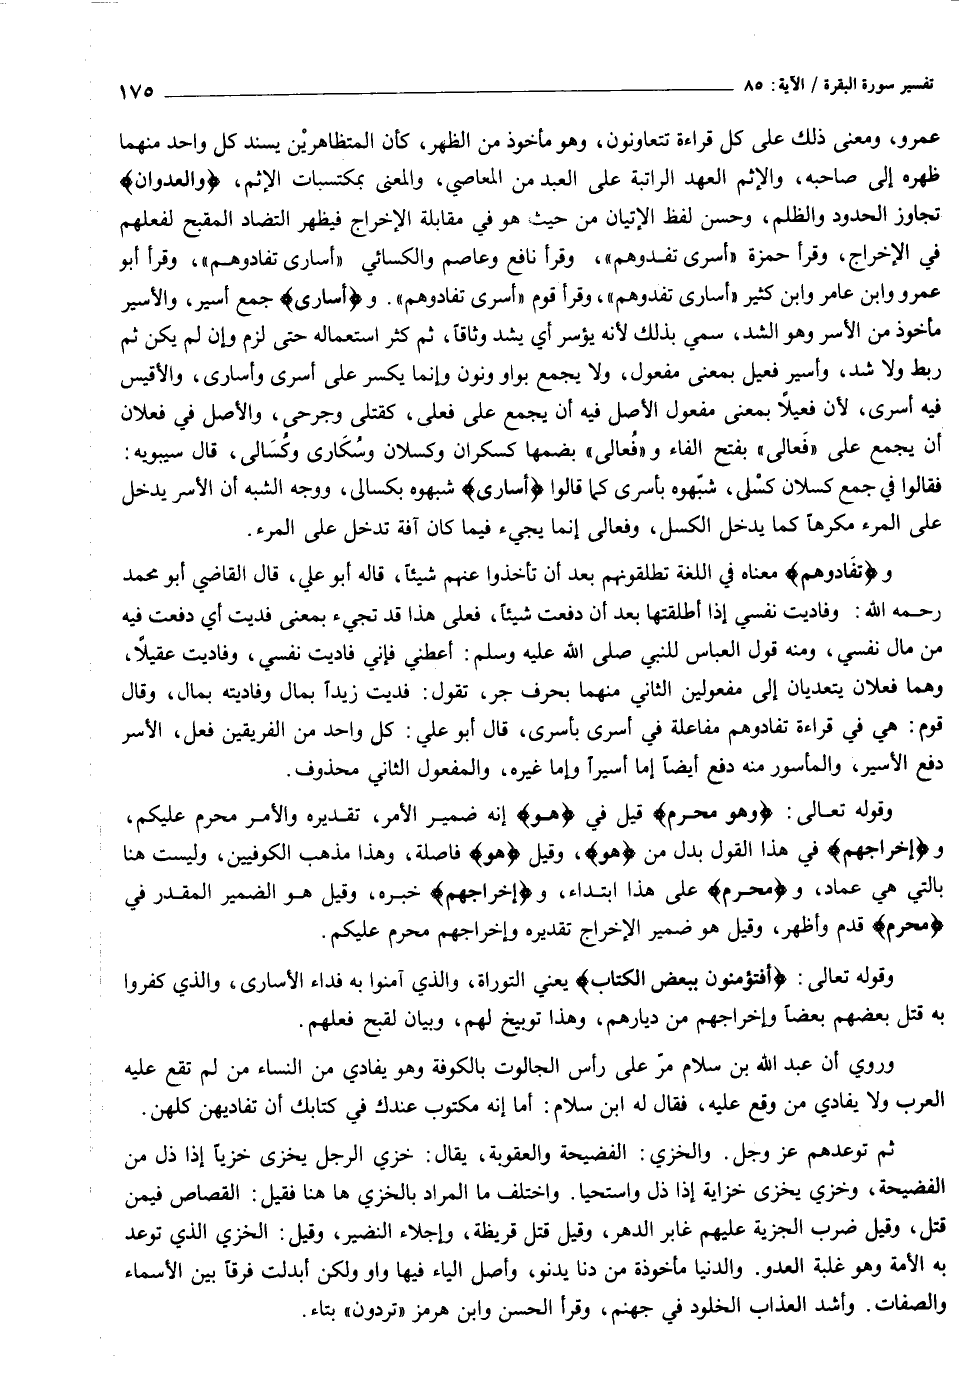 تفسير سورة البقرة / الآية: ٨٥ ١٧٥
عمرو، ومعنى ذلك على كل قراءة تتعاونون، وهو مأخوذ من الظهر، كأن المتظاهريْن يسند كل واحد منهما
ظهره إلى صاحبه، والإثم العهد الراتبة على العبد من المعاصي، والمعنى بمكتسبات الإثم، ﴿والعدوان﴾
تجاوز الحدود والظلم، وحسن لفظ الإتيان من حيث هو في مقابلة الإخراج فيظهر التضاد المقبح لفعلهم
في الإخراج، وقرأ حمزة «أسرى تفدوهم»، وقرأ نافع وعاصم والكسائي «أسارى تفادوهم»، وقرأ أبو
عمرو وابن عامر وابن كثير «أسارى تفدوهم»، وقرأ قوم «أسرى تفادوهم». و﴿أسارى﴾ جمع أسير، والأسير
مأخوذ من الأسر وهو الشد، سمي بذلك لأنه يؤسر أي يشد وثاقاً، ثم كثر استعماله حتى لزم وإن لم يكن ثم
ربط ولا شد، وأسير فعيل بمعنى مفعول، ولا يجمع بواو ونون وإنما يكسر على أسرى وأسارى، والأقيس
فيه أسرى، لأن فعيلاً بمعنى مفعول الأصل فيه أن يجمع على فعلى، كقتلى وجرحى، والأصل في فعلان
أن يجمع على «فَعالى» بفتح الفاء و«فُعالى» بضمها كسكران وكسلان وسُكَارى وكُسَالى، قال سيبويه:
فقالوا في جمع كسلان كسْلى، شبّهوه بأسرى كما قالوا ﴿أسارى﴾ شبهوه بكسالى، ووجه الشبه أن الأسر يدخل
على المرء مكرهاً كما يدخل الكسل، وفعالى إنما يجيء فيما كان آفة تدخل على المرء.
و﴿تفَادوهم﴾ معناه في اللغة تطلقونهم بعد أن تأخذوا عنهم شيئاً، قاله أبو علي، قال القاضي أبو محمد
رحمه الله: وفاديت نفسي إذا أطلقتها بعد أن دفعت شيئاً، فعلى هذا قد تجيء بمعنى فديت أي دفعت فيه
من مال نفسي، ومنه قول العباس للنبي صلى الله عليه وسلم: أعطني فإني فاديت نفسي، وفاديت عقيلاً،
وهما فعلان يتعديان إلى مفعولين الثاني منهما بحرف جر، تقول: فديت زيداً بمال وفاديته بمال، وقال
قوم: هي في قراءة تفادوهم مفاعلة في أسرى بأسرى، قال أبو علي: كل واحد من الفريقين فعل، الأسر
دفع الأسير، والمأسور منه دفع أيضاً إما أسيراً وإما غيره، والمفعول الثاني محذوف.
وقوله تعالى: ﴿وهو محرم﴾ قيل في ﴿هو﴾ إنه ضمير الأمر، تقديره والأمر محرم عليكم،
و﴿إخراجهم﴾ في هذا القول بدل من ﴿هو﴾، وقيل ﴿هو﴾ فاصلة، وهذا مذهب الكوفيين، وليست هنا
بالتي هي عماد، و﴿محرم﴾ على هذا ابتداء، و﴿إخراجهم﴾ خبره، وقيل هو الضمير المقدر في
﴿محرم﴾ قدم وأظهر، وقيل هو ضمير الإخراج تقديره وإخراجهم محرم عليكم.
وقوله تعالى: ﴿أفتؤمنون ببعض الكتاب﴾ يعني التوراة، والذي آمنوا به فداء الأسارى، والذي كفروا
به قتل بعضهم بعضاً وإخراجهم من ديارهم، وهذا توبيخ لهم، وبيان لقبح فعلهم.
وروي أن عبد الله بن سلام مرّ على رأس الجالوت بالكوفة وهو يفادي من النساء من لم تقع عليه
العرب ولا يفادي من وقع عليه، فقال له ابن سلام: أما إنه مكتوب عندك في كتابك أن تفاديهن كلهن.
ثم توعدهم عز وجل. والخزي: الفضيحة والعقوبة، يقال: خزي الرجل يخزى خزياً إذا ذل من
الفضيحة، وخزي يخزى خزاية إذا ذل واستحيا. واختلف ما المراد بالخزي ها هنا فقيل: القصاص فيمن
قتل، وقيل ضرب الجزية عليهم غابر الدهر، وقيل قتل قريظة، وإجلاء النضير، وقيل: الخزي الذي توعد
به الأمة وهو غلبة العدو. والدنيا مأخوذة من دنا يدنو، وأصل الياء فيها واو ولكن أبدلت فرقاً بين الأسماء
والصفات. وأشد العذاب الخلود في جهنم، وقرأ الحسن وابن هرمز «تردون» بتاء.